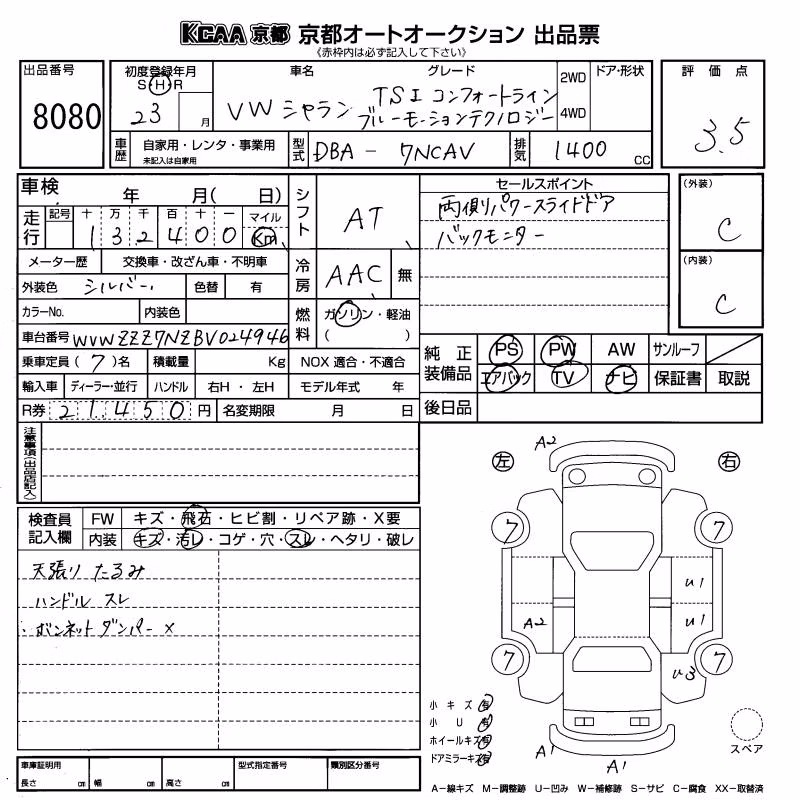 KCAA 京都 京都オートオークション 出品票
《赤枠内は必ず記入して下さい》
出品番号
8080
初度登録年月
S H R
23 月
車名 グレード
VW シャラン TSI コンフォートライン
ブルーモーションテクノロジー
2WD
4WD
ドア・形状
評価点
3.5
車歴 自家用・レンタ・事業用
未記入は自家用
型式 DBA - 7NCAV
排気 1400 CC
車検 年 月( 日)
走行 記号 十 万 千 百 十 一 マイル
1 3 2 4 0 0 Km
メーター歴 交換車・改ざん車・不明車
外装色 シルバー 色替 有
カラーNo. 内装色
車台番号 WVWZZZ7NZBV024946
乗車定員 ( 7 )名 積載量 Kg NOX 適合・不適合
輸入車 ディーラー・並行 ハンドル 右H・左H モデル年式 年
R券 21,450 円 名変期限 月 日
シフト AT
冷房 AAC 無
燃料 ガソリン・軽油
( )
セールスポイント
両側パワースライドドア
バックモニター
(外装)
C
(内装)
C
純正装備品 PS PW AW サンルーフ
エアバック TV ナビ 保証書 取説
後日品
注意事項(出品店記入)
検査員記入欄 FW キズ・飛石・ヒビ割・リペア跡・X要
内装 キズ・汚レ・コゲ・穴・スレ・ヘタリ・破レ
天張り たるみ
ハンドル スレ
・ボンネットダンパー X
左 右
A2
7 7
U1
A2 U1
7 7
U3
A1 A1
小キズ 有
小U 有
ホイールキズ 有
ドアミラーキズ 有
スペア
車庫証明用
長さ cm 幅 cm 高さ cm
型式指定番号 類別区分番号
A−線キズ M−調整跡 U−凹み W−補修跡 S−サビ C−腐食 XX−取替済